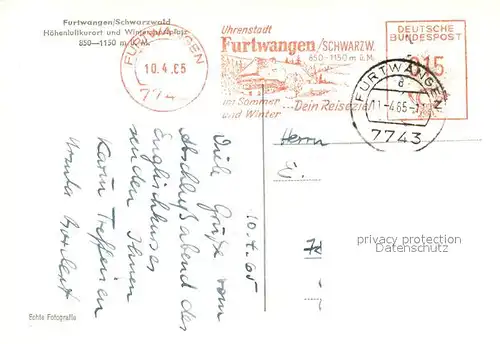 Furtwangen/Schwarzwald
Höhenluftkurort und Wintersportplatz
850—1150 m ü. M.
FURTWANGEN
10.4.65
774
Uhrenstadt
Furtwangen/SCHWARZW.
850-1150 m ü. M.
im Sommer ...Dein Reiseziel
und Winter
DEUTSCHE
BUNDESPOST
015
FURTWANGEN
a
11-4.65-11
7743
Herrn
E.
10.4.65
Viele Grüße vom
Abschlußabend des
Englischkurses
senden Ihnen
Karin
Echte Fotografie
privacy protection
Datenschutz